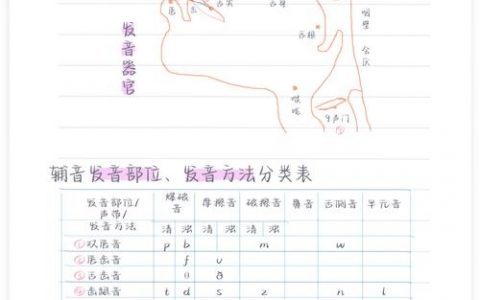 唇 齿 舌尖 舌壁 咽壁
舌根 会厌
发音器官
喉咙
声门
①
辅音发音部位、发音方法分类表
发音部位/声带/发音方法 爆破音 摩擦音 破擦音 鼻音 舌侧音 半元音
清 浊 清 浊 清 浊
①双唇音 p b m w
②唇齿音 f v
③舌齿音 θ ð
④齿龈音 t d s z n l